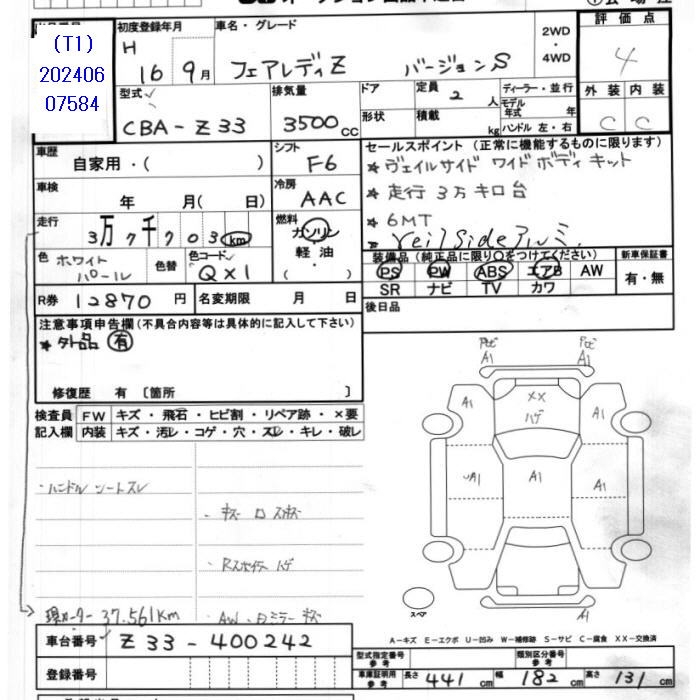 (T1)
202406
07584
初度登録年月 車名・グレード
H 16 9月 フェアレディZ バージョンS
2WD
・
4WD
評価点
4
外装 内装
C C
型式 排気量 ドア 定員 ディーラー・並行
CBA-Z33 3500cc 形状 2人 モデル年式 年
積載 kg ハンドル 左・右
車歴 シフト セールスポイント (正常に機能するものに限ります)
自家用・( ) F6
★ ヴェイルサイド ワイドボディキット
車検 冷房
年 月( 日) AAC
★ 走行 3万キロ台
走行 燃料
3万7千703km ガソリン
軽油
・( )
★ 6MT
★ Veilsideアルミ.
色 ホワイトパール 色替 色コード QX1
装備品 (純正品に限り○をつけてください) 新車保証書
PS PW ABS エアB AW 有・無
SR ナビ TV カワ
R券 12870円 名変期限 月 日
後日品
注意事項申告欄(不具合内容等は具体的に記入して下さい)
★ 外品 有
修復歴 有 〔箇所 〕
検査員 FW キズ・飛石・ヒビ割・リペア跡・×要
記入欄 内装 キズ・汚レ・コゲ・穴・スレ・キレ・破レ
・ハンドル シートスレ
・Rスポイラー ハゲ
37.561km
・AW・ドミラー キズ
A1 A1
A1 XX ハゲ A1
A1 A1
A1
スペア
A-キズ E-エクボ U-凹み W-補修跡 S-サビ C-腐食 XX-交換済
車台番号 Z33-400242
登録番号
型式指定番号 参考 類別区分番号 参考
車庫証明用 参考 長さ 441cm 幅 182cm 高さ 131cm